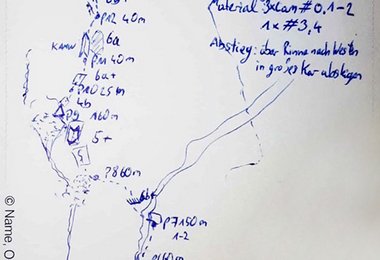 P12 40m
Material: 3xCam #0.1-2
1x #3,4
Kamin
6a
Abstieg: über Rinne nach Westen
in großes Kar absteigen
P11 40m
6a+
P10 25m
4b
P9 160m
5+
5
P8 60m
6b+
P7 150m
1-2
P6 60m
© Name, O